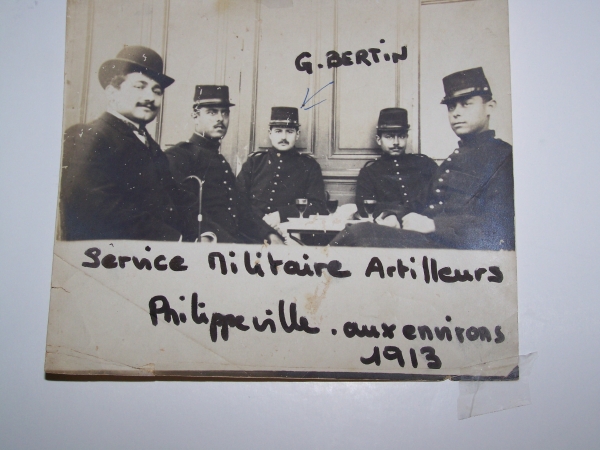 G. BERTIN
Service Militaire Artilleurs
Philippeville. aux environs
1913